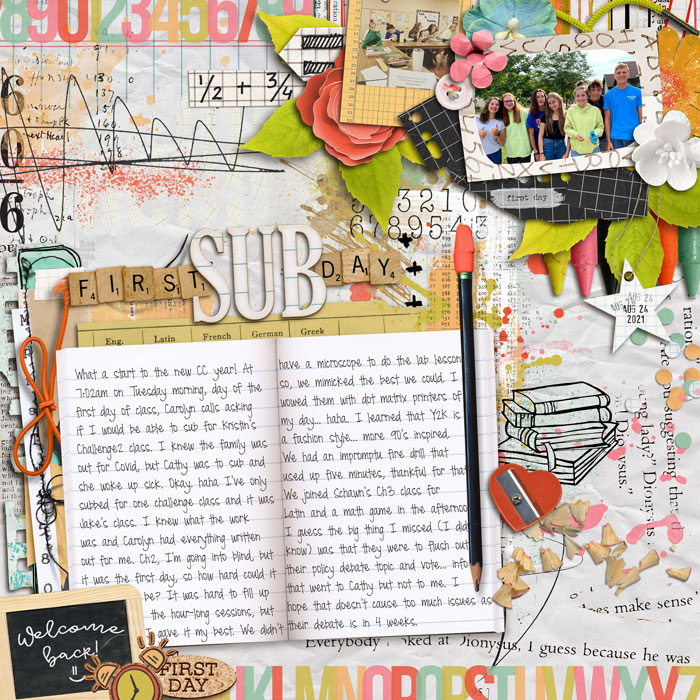 89012345678
1/2 + 3/4
first day
3 2 1 0
FIRST SUB DAY
Eng. Latin French German Greek
AUG 24
2021
What a start to the new CC year! At
7:02am on Tuesday morning, day of the
first day of class, Carolyn calls asking
if I would be able to sub for Kristin's
Challenge2 class. I knew the family was
out for Covid, but Cathy was to sub and
she woke up sick. Okay. haha I've only
subbed for one challenge class and it was
Jake's class. I knew what the work
was and Carolyn had everything written
out for me. Ch2, I'm going into blind, but
it was the first day, so how hard could it
be? It was hard to fill up
the hour-long sessions, but
gave it my best. We didn't
have a microscope to do the lab lesson
so, we mimicked the best we could. I
wowed them with dot matrix printers of
my day... haha. I learned that Y2K is
a fashion style... more 90's inspired.
We had an impromptu fire drill that
used up five minutes, thankful for that
We joined Schaun's Ch3 class for
Latin and a math game in the afternoo
I guess the big thing I missed (I did
know) was that they were to flush out
their policy debate topic and vote... info
that went to Cathy but not to me. I
hope that doesn't cause too much issues as
their debate is in 4 weeks.
"Dionysus."
ng lady?" Dionysus
es make sense'
Everybody looked at Dionysus, I guess because he was
Welcome
back!
FIRST
DAY
JKLMNOPQRSTUVWXYZ